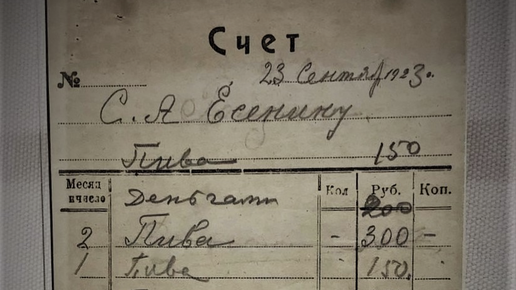 Счет
№ 23 Сентяб 1923 г.
С. А Есенину.
Пива 150
Месяц и число Кол Руб. Коп.
Деньгами 200
2 Пива - 300 -
1 Пива 150.